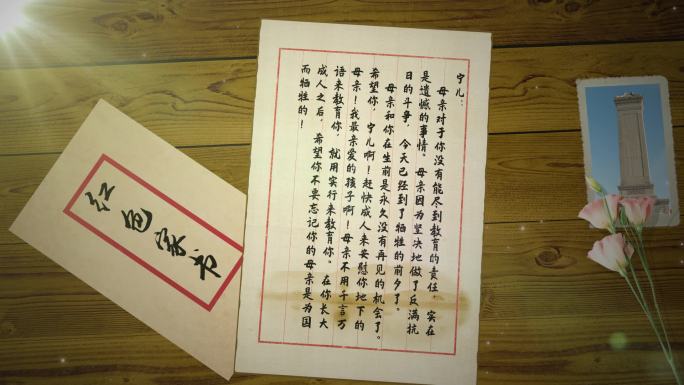 宁儿：
母亲对于你没有能尽到教育的责任，实在
是遗憾的事情。母亲因为坚决地做了反满抗
日的斗争，今天已经到了牺牲的前夕了。
母亲和你在生前是永久没有再见的机会了。
希望你，宁儿啊！赶快成人来安慰你地下的
母亲！我最亲爱的孩子啊！母亲不用千言万
语来教育你，就用实行来教育你。在你长大
成人之后，希望你不要忘记你的母亲是为国
而牺牲的！
红色家书